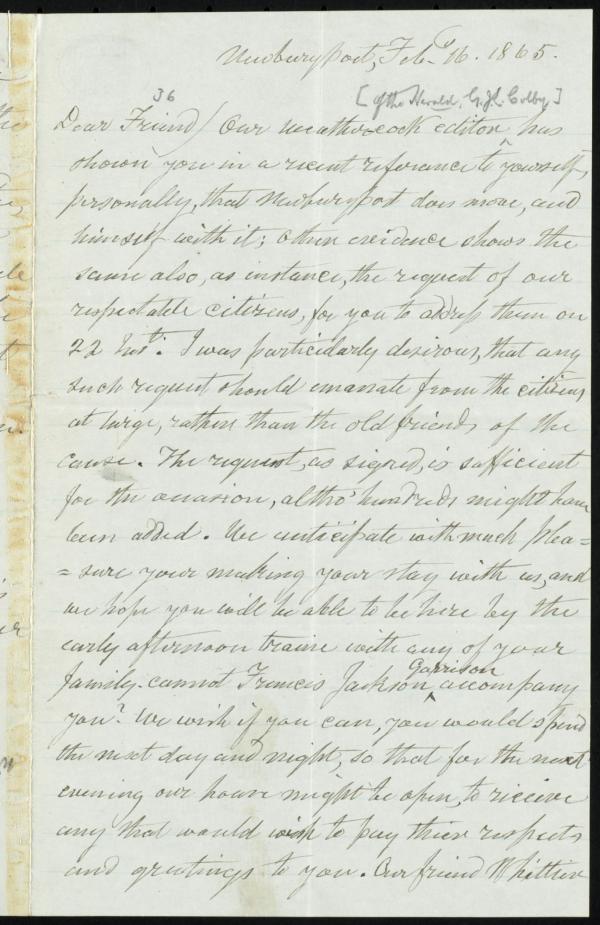 Newburyport, Feb. 16. 1865.
36
[of the Herald, G.J.L. Colby]
Dear Friend / Our weather-cock editor ^ has
shown you in a recent referance to yourself,
personally, that Newburyport does move, and
himself with it; other evidence shows the
same also, as instance, the request of our
respectable citizens, for you to address them on
22 inst. I was particularly desirous, that any
such request should emanate from the citizens
at large, rather than the old friends of the
cause. The request, as signed, is sufficient
for the occasion, altho' hundreds might have
been added. We anticipate with much plea=
=sure your making your stay with us, and
we hope you will be able to be here by the
early afternoon traine with any of your
family. cannot Francis Jackson ^ Garrison accompany
you? We wish if you can, you would spend
the next day and night, so that for the next
evening our house might be open, to receive
any that would wish to pay thier respects
and greetings to you. Our friend Whittier